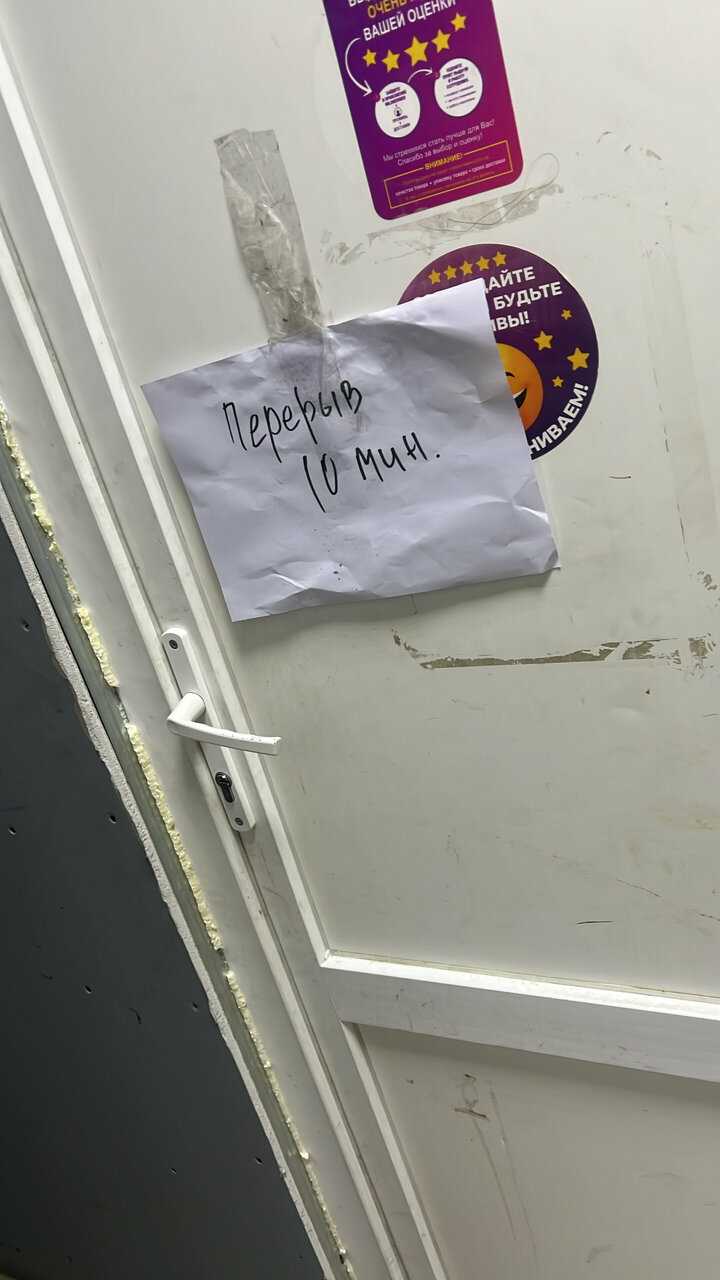 ОЧЕНЬ
ВАШЕЙ ОЦЕНКИ
Мы стремимся стать лучше для Вас!
Спасибо за выбор и оценку!
ВНИМАНИЕ!
качество товара • упаковку товара • сроки доставки
ДАЙТЕ
БУДЬТЕ
ИВЫ!
НИВАЕМ!
Перерыв
10 мин.